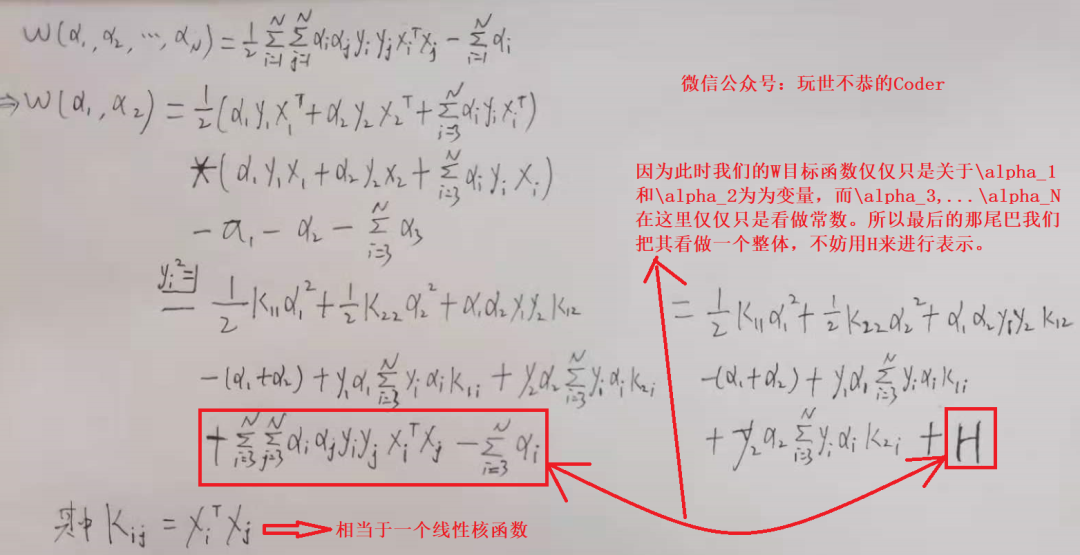 W(α₁, α₂, ⋯, α_N) = 1/2 ∑_{i=1}^{N} ∑_{j=1}^{N} αᵢαⱼyᵢyⱼxᵢᵀxⱼ - ∑_{i=1}^{N} αᵢ
微信公众号：玩世不恭的Coder
⇒ W(α₁, α₂) = 1/2 (α₁y₁x₁ᵀ + α₂y₂x₂ᵀ + ∑_{i=3}^{N} αᵢyᵢxᵢᵀ)
* (α₁y₁x₁ + α₂y₂x₂ + ∑_{i=3}^{N} αᵢyᵢxᵢ)
- α₁ - α₂ - ∑_{i=3}^{N} α₃
因为此时我们的W目标函数仅仅只是关于\alpha_1
和\alpha_2为为变量，而\alpha_3,...\alpha_N
在这里仅仅只是看做常数。所以最后的那尾巴我们
把其看做一个整体，不妨用H来进行表示。
yᵢ²=1
= 1/2 K₁₁α₁² + 1/2 K₂₂α₂² + α₁α₂y₁y₂K₁₂
-(α₁+α₂) + y₁α₁ ∑_{i=3}^{N} yᵢαᵢK₁ᵢ + y₂α₂ ∑_{i=3}^{N} yᵢαᵢK₂ᵢ
+ ∑_{i=3}^{N} ∑_{j=3}^{N} αᵢαⱼyᵢyⱼxᵢᵀxⱼ - ∑_{i=3}^{N} αᵢ
= 1/2 K₁₁α₁² + 1/2 K₂₂α₂² + α₁α₂y₁y₂K₁₂
-(α₁+α₂) + y₁α₁ ∑_{i=3}^{N} yᵢαᵢK₁ᵢ
+ y₂α₂ ∑_{i=3}^{N} yᵢαᵢK₂ᵢ + H
其中 Kᵢⱼ = xᵢᵀxⱼ
相当于一个线性核函数